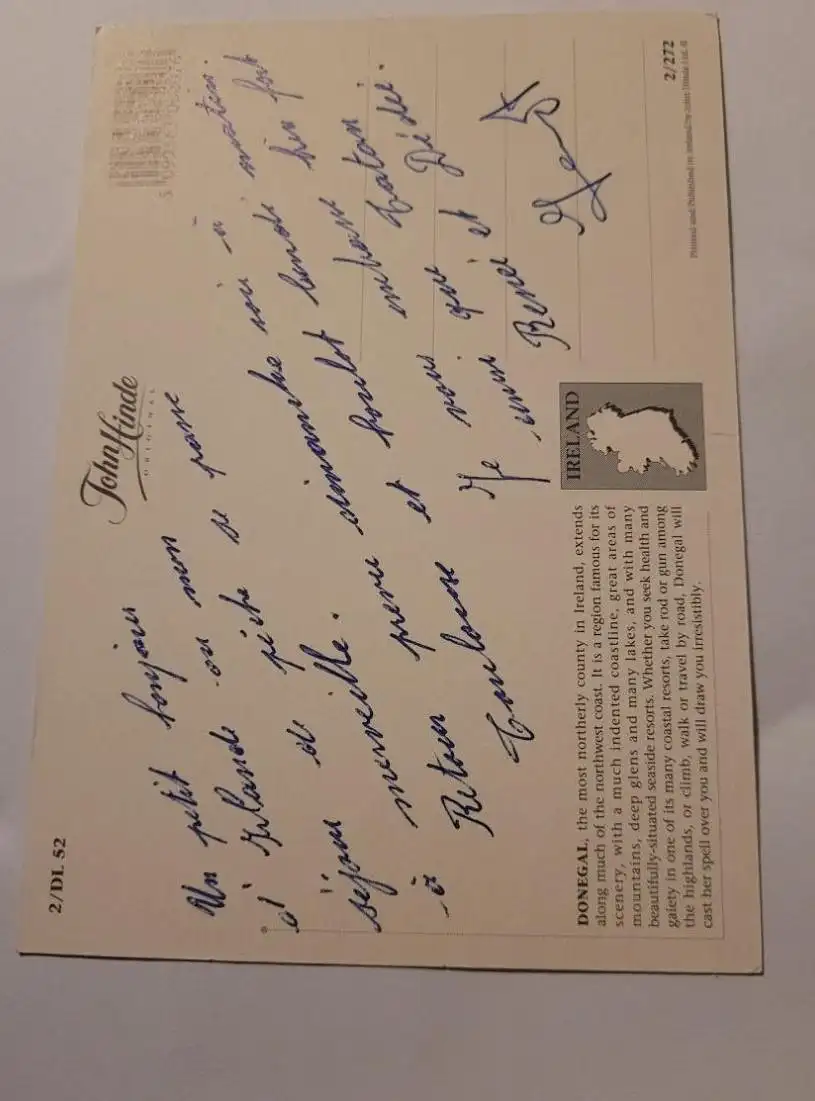 2/DL 52
John Hinde
ORIGINAL
Un petit bonjour
d'Irlande ou mon
séjour de pêche se passe
à merveille.
Retour prevu dimanche soir à
Toulouse et boulot lundi matin.
Je vous
que et
René
DONEGAL, the most northerly county in Ireland, extends
along much of the northwest coast. It is a region famous for its
scenery, with a much indented coastline, great areas of
mountains, deep glens and many lakes, and with many
beautifully-situated seaside resorts. Whether you seek health and
gaiety in one of its many coastal resorts, take rod or gun among
the highlands, or climb, walk or travel by road, Donegal will
cast her spell over you and will draw you irresistibly.
IRELAND
2/272
Printed and Published in Ireland by John Hinde